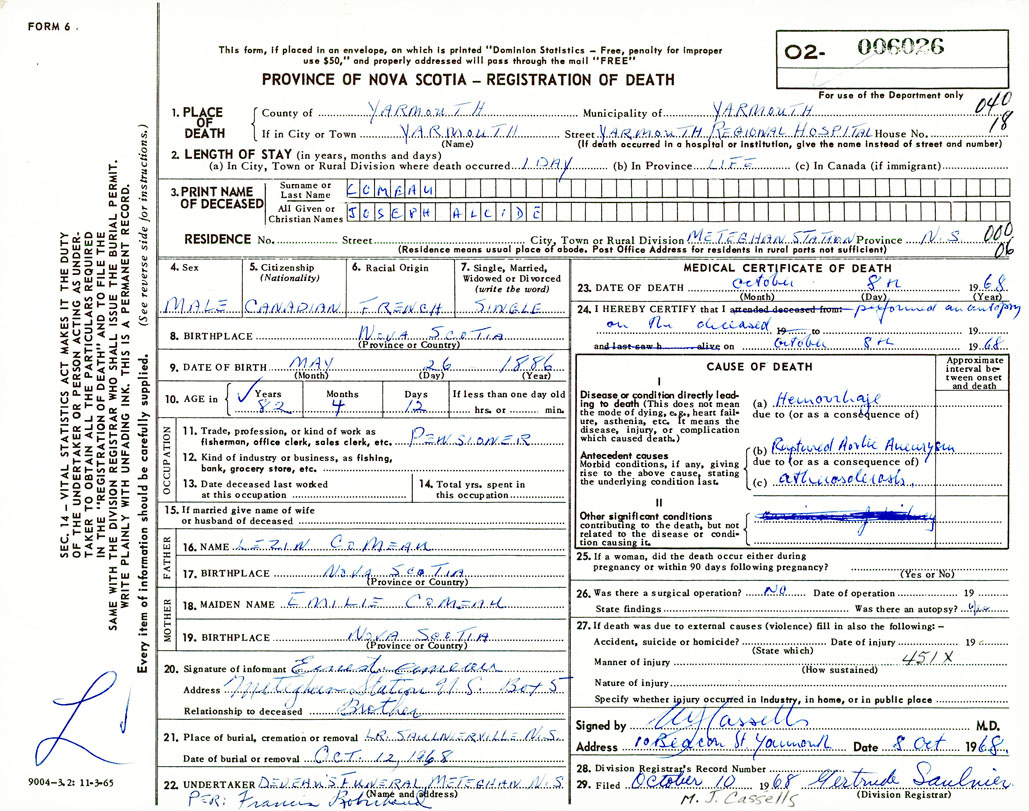 FORM 6 .
This form, if placed in an envelope, on which is printed "Dominion Statistics – Free, penalty for improper
use $50," and properly addressed will pass through the mail "FREE"
PROVINCE OF NOVA SCOTIA – REGISTRATION OF DEATH
O2- 006026
For use of the Department only
040
18
1. PLACE OF DEATH
County of YARMOUTH Municipality of YARMOUTH
If in City or Town YARMOUTH Street YARMOUTH REGIONAL HOSPITAL House No.
(Name) (If death occurred in a hospital or institution, give the name instead of street and number)
2. LENGTH OF STAY (in years, months and days)
(a) In City, Town or Rural Division where death occurred 1 DAY (b) In Province LIFE (c) In Canada (if immigrant)
3. PRINT NAME OF DECEASED
Surname or Last Name COMEAU
All Given or Christian Names JOSEPH ALCIDE
RESIDENCE No. Street City, Town or Rural Division METEGHAN STATION Province N.S.
000
06
(Residence means usual place of abode. Post Office Address for residents in rural parts not sufficient)
4. Sex
MALE
5. Citizenship
(Nationality)
CANADIAN
6. Racial Origin
FRENCH
7. Single, Married,
Widowed or Divorced
(write the word)
SINGLE
8. BIRTHPLACE NOVA SCOTIA
(Province or Country)
9. DATE OF BIRTH MAY 26 1886
(Month) (Day) (Year)
10. AGE in
Years Months Days If less than one day old
82 4 12 hrs. or min.
OCCUPATION
11. Trade, profession, or kind of work as
fisherman, office clerk, sales clerk, etc. PENSIONER
12. Kind of industry or business, as fishing,
bank, grocery store, etc.
13. Date deceased last worked
at this occupation
14. Total yrs. spent in
this occupation
15. If married give name of wife
or husband of deceased
FATHER
16. NAME LEZIN COMEAU
17. BIRTHPLACE NOVA SCOTIA
(Province or Country)
MOTHER
18. MAIDEN NAME EMILIE COMEAU
19. BIRTHPLACE NOVA SCOTIA
(Province or Country)
20. Signature of informant Ernest Comeau
Address Meteghan Station N.S. Box 5
Relationship to deceased Brother
21. Place of burial, cremation or removal LR. SAULNIERVILLE N.S.
Date of burial or removal OCT. 12, 1968
22. UNDERTAKER DEVEAU'S FUNERAL METEGHAN N.S
(Name and address)
PER: Francis
MEDICAL CERTIFICATE OF DEATH
23. DATE OF DEATH October 8th 1968
(Month) (Day) (Year)
24. I HEREBY CERTIFY that I attended deceased from: performed an autopsy
on the deceased 19 to 19
and last saw h alive on October 8th 1968
CAUSE OF DEATH
Approximate
interval be-
tween onset
and death
I
Disease or condition directly lead-
ing to death (This does not mean
the mode of dying, e.g., heart fail-
ure, asthenia, etc. It means the
disease, injury, or complication
which caused death.)
(a) Hemorrhage
due to (or as a consequence of)
Antecedent causes
Morbid conditions, if any, giving
rise to the above cause, stating
the underlying condition last.
(b) Ruptured Aortic Aneurysm
due to (or as a consequence of)
(c) atherosclerosis.
II
Other significant conditions
contributing to the death, but not
related to the disease or condi-
tion causing it.
25. If a woman, did the death occur either during
pregnancy or within 90 days following pregnancy?
(Yes or No)
26. Was there a surgical operation? NO Date of operation 19
State findings Was there an autopsy? yes
27. If death was due to external causes (violence) fill in also the following: –
Accident, suicide or homicide? Date of injury 19
(State which)
Manner of injury 451X
(How sustained)
Nature of injury
Specify whether injury occurred in Industry, in home, or in public place
Signed by Cassells M.D.
Address 10 Beacon St Yarmouth Date 8 Oct 1968.
28. Division Registrar's Record Number
29. Filed October 10 1968 Gertrude Saulnier
(Division Registrar)
M. J. Cassells
SEC. 14 – VITAL STATISTICS ACT MAKES IT THE DUTY
OF THE UNDERTAKER OR PERSON ACTING AS UNDER-
TAKER TO OBTAIN ALL THE PARTICULARS REQUIRED
IN THE "REGISTRATION OF DEATH" AND TO FILE THE
SAME WITH THE DIVISION REGISTRAR WHO SHALL ISSUE THE BURIAL PERMIT.
WRITE PLAINLY WITH UNFADING INK. THIS IS A PERMANENT RECORD.
Every item of information should be carefully supplied. (See reverse side for instructions.)
9004-3.2: 11-3-65